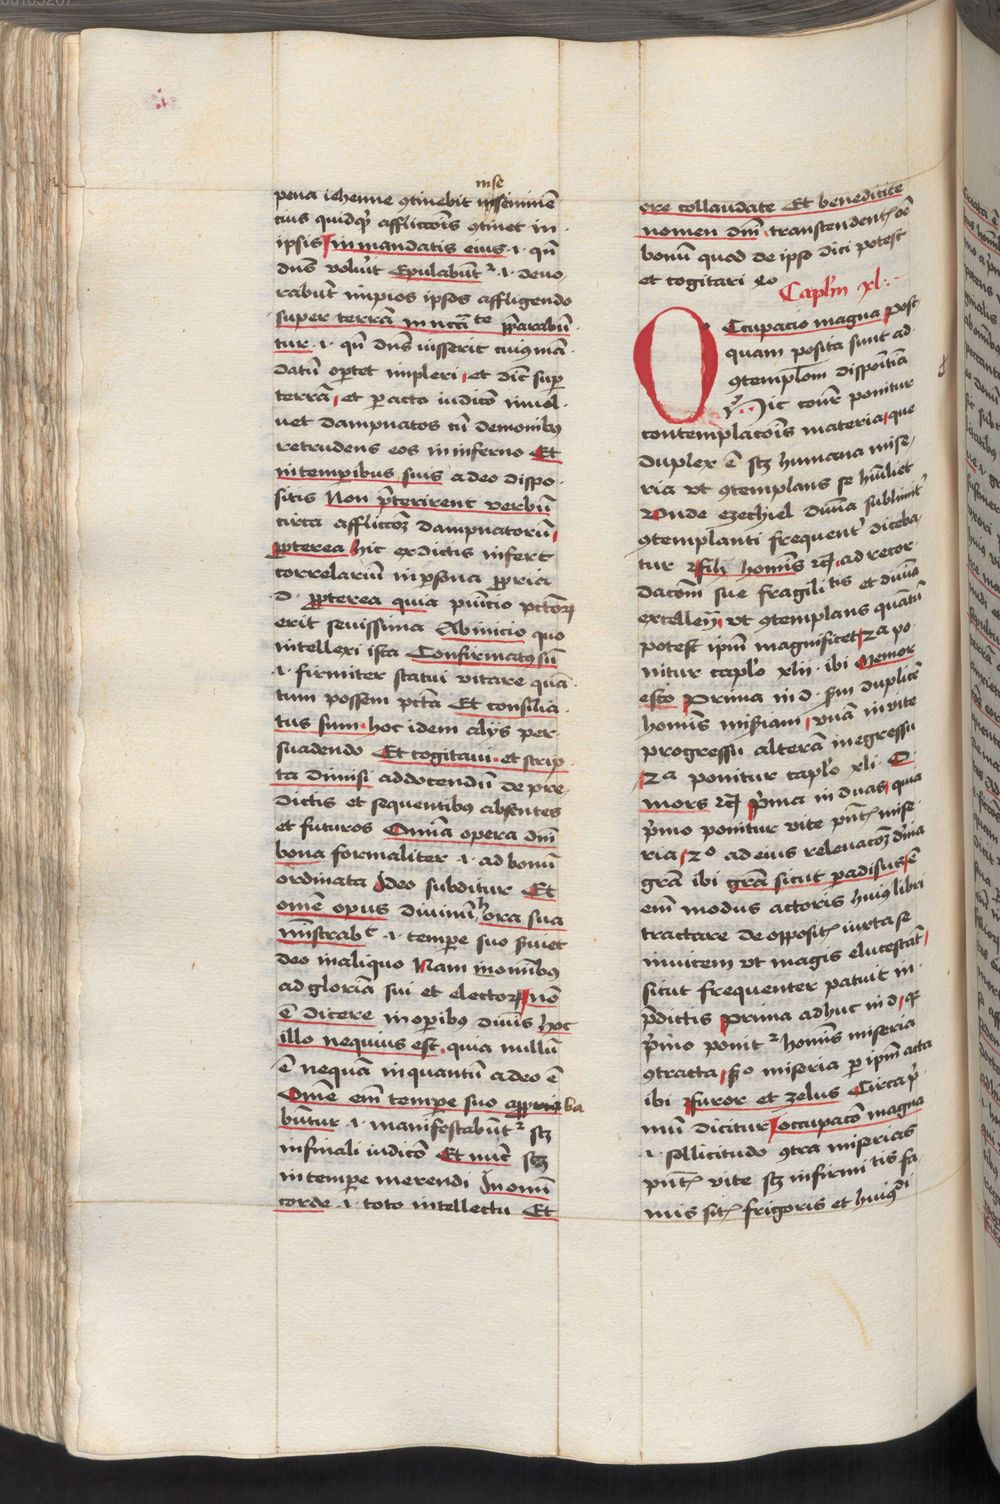 pena iehenne ꝯtinebit inse semine
cius quidqͥd afflicc̄ois ꝯtinet in
ipsis in mandatis eius .i. qn̄
dn̄s volu̓it Epulabūt² .i. devo
rabūt impios ipsos affligendo
super terrā in necc̄itate p̄parabūt
tur .i. qn̄ dn̄s iusserit cuiꝰ man
datū oꝑtet impleri et dic̄ suꝑ
terrā et ꝑacto iudico̅ invol
uet dampnatos cū demonibꝰ
retrudens eos in inferno Et
in temꝑibus suis a deo dispo
sitis Non p̄terirent verbū
circa afflicco̅ꝫ dampnatorū
ꝓpterea hic ex dictis infert
correlariū in ꝑsona ꝓpria
.d. ꝓpterea quia puni̅cio pctōꝝ
erit sevissima Ab inicio quo
intellexi ista Confirmatꝰ sū
.i. firmiter statui vitare quā
tum possem pctā Et consilia
tus sum hoc idem alijs per
suadendo Et cogitavi et scrip
ta dimisi ad docendū de pre
dictis et sequentibꝰ absentes
et futuros Omnia opera dn̄i
bona formaliter .i. ad bonū
ordinata Ideo subditur Et
om̄e opus divinū hora sua
mīstrabᵗ .i. tempe suo ẜviet
deo in aliquo Nam in om̄ibꝰ
ad gloriā sui et electoꝝ nō
ē dicere in oꝑibꝰ divīs hoc
illo nequius est quia nullū
ē nequā in quantū a deo ē
Om̄e em̄ tempe suo apꝓba
būtur .i. manifestabūt² scꝫ
in finali iudico̅ Et nūc scꝫ
in tempe merendi In om̄i
corde .i. toto intellectu Et
ore collaudate Et benedicite
nomen dn̄i transcendentꝭ oē
bonū quod de ipso dici potest
et cogitari
Caplm̄ xl
Occupacio magna post
quam posita sunt ad
ꝯtempląco̅em disponētiā
Hic conr̄ ponitur
contemplaco̅is materia que
duplex ē scꝫ humana mise
ria vt ꝯtemplans se hūiliet
Unde ezechiel divīa sublimit̓
ꝯtemplanti frequent̓ diceba
tur fili homīs ꝛcꝫ ad recor
dacōm sue fragilitatis et divīa
excellen̄ vt ꝯtemplans quātū
potest ipm̄ magnificet 2a po
nitur caplo xlii ibi Memor
esto Prima in d. ẜm duplicē
homīs mis̓iam vnā in vite
progressu alterā in egressu
2a ponitur caplo xli O
mors ꝛcꝫ p̓ma in duas quia
p̓mo ponitur vite pn̄tꝭ mise
ria 2o ad eius relevaco̅ꝫ dīna
grā ibi grā sicut paradisus ē
em̄ modus actoris huiꝰ libri
tractare de oppositꝭ iuxta se
invicem vt magis elucescāt
sicut frequenter patuit in
p̄dictis Prima adhuc in d. qꝛ
p̓mo ponit² homīs miseria
ꝯtracta ẜo miseria ꝑ ipm̄ acta
ibi furor et zelus Circa p̓
mū dicitur occupaco̅ magna
.i. sollicitudo ꝯtra miserias
pn̄tꝭ vite scꝫ infirmitatis fa
mis sitꝭ frigoris et huiꝰdi